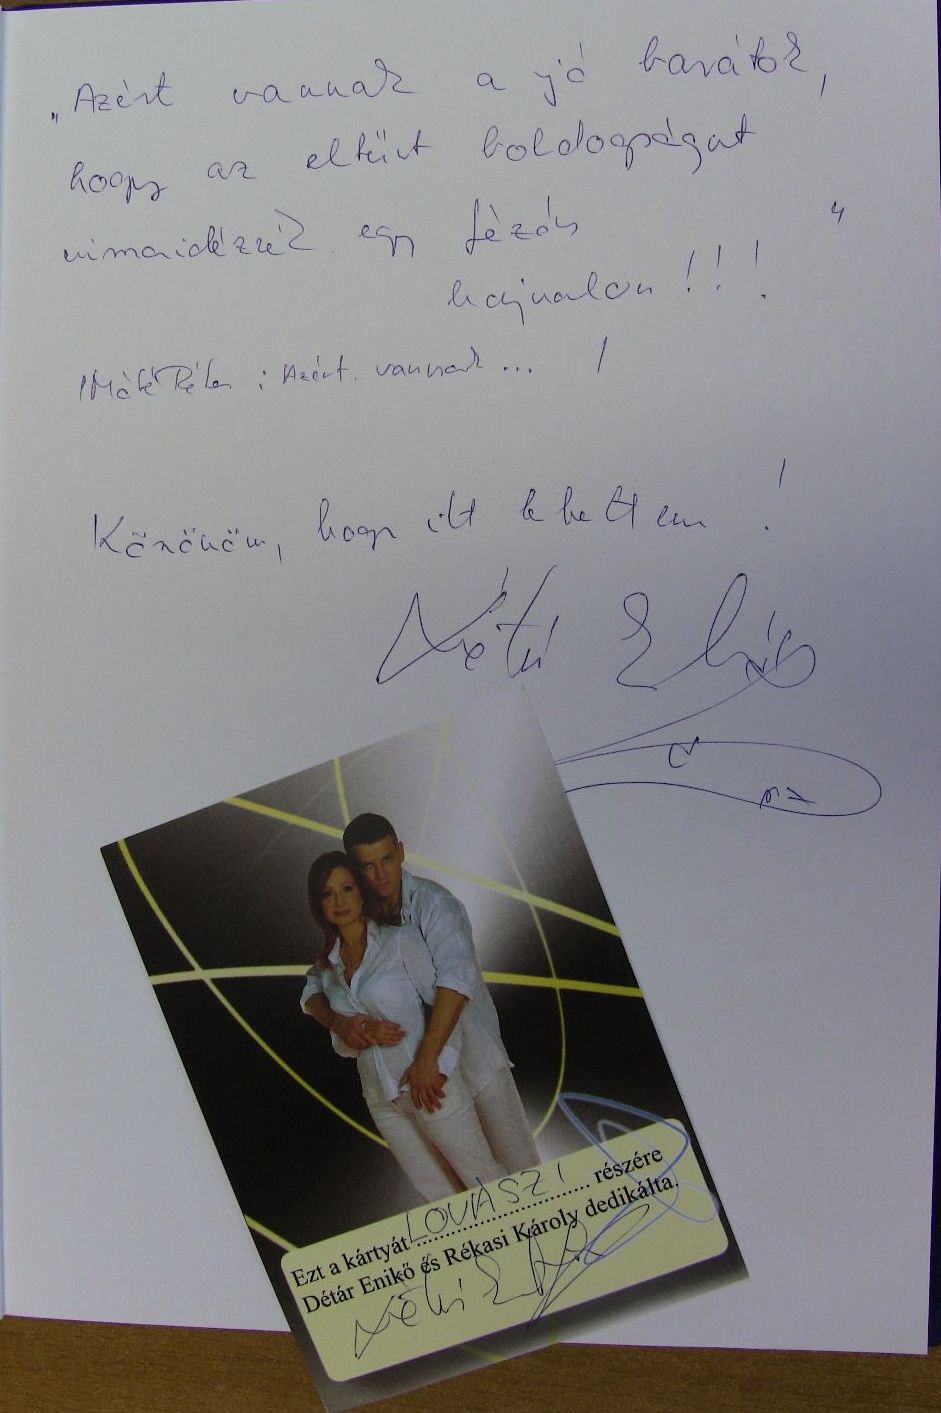 „Azért vannak a jó barátok,
hogy az eltűnt boldogságot
visszaidézzék egy fázós
hajnalon!!!"
/Máté Péter: Azért vannak... /
Köszönöm, hogy itt lehettem!
Détár Enikő
Ezt a kártyát LOVÁSZI részére
Détár Enikő és Rékasi Károly dedikálta.
Détár Enikő